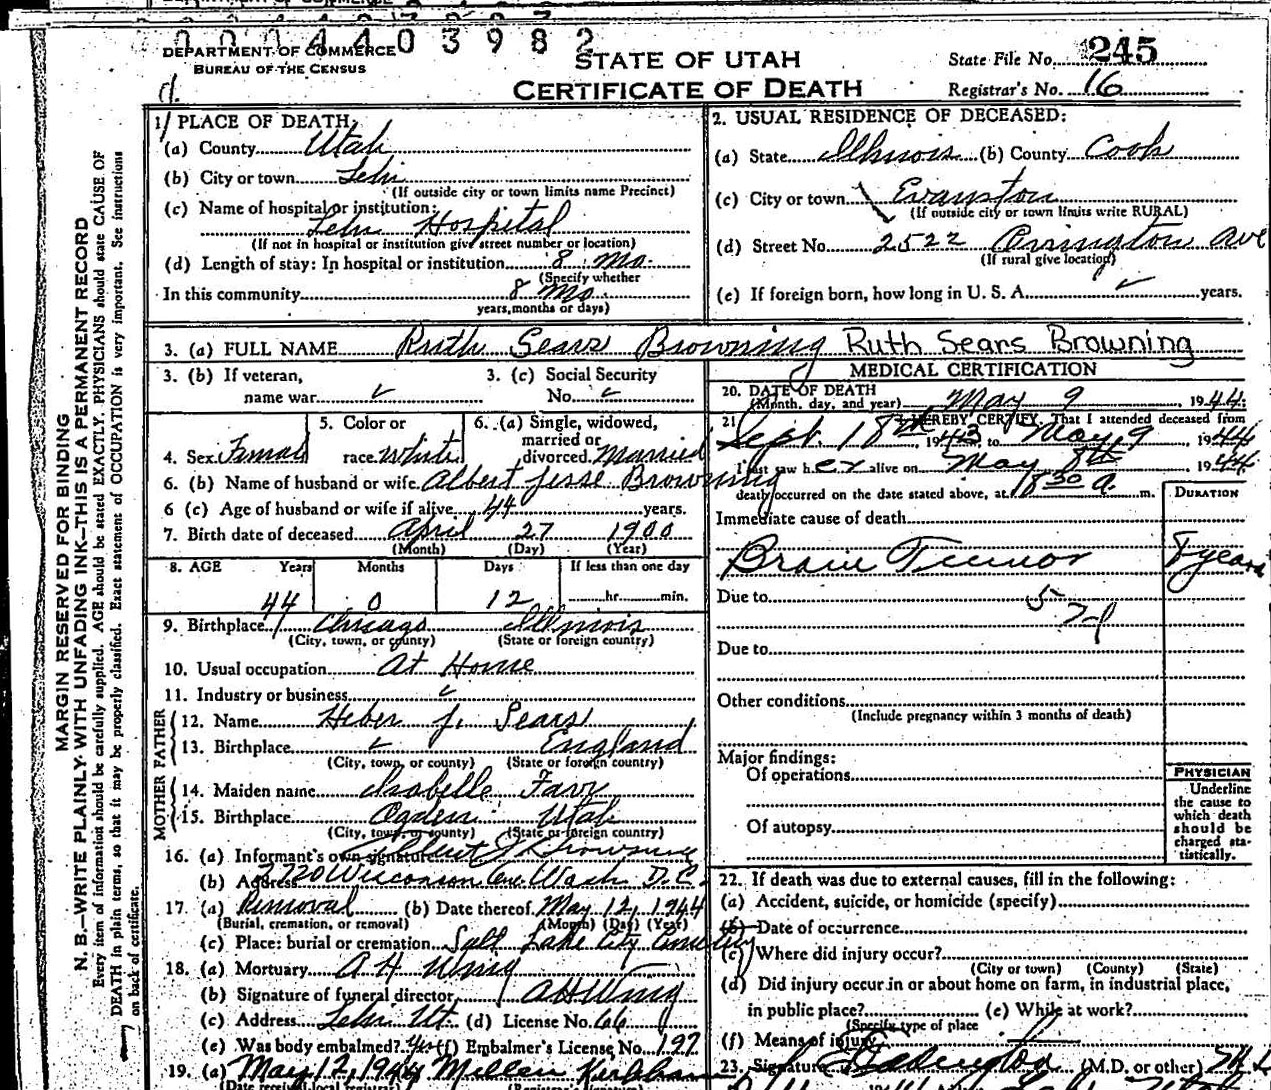 DEPARTMENT OF COMMERCE
0 0 0 4 4 0 3 9 8 2
DEPARTMENT OF COMMERCE
BUREAU OF THE CENSUS
STATE OF UTAH
CERTIFICATE OF DEATH
State File No. 245
Registrar's No. 16
1. PLACE OF DEATH:
(a) County Utah
(b) City or town Lehi
(If outside city or town limits name Precinct)
(c) Name of hospital or institution:
Lehi Hospital
(If not in hospital or institution give street number or location)
(d) Length of stay: In hospital or institution 8 mo.
(Specify whether
In this community 8 mo.
years, months or days)
2. USUAL RESIDENCE OF DECEASED:
(a) State Illinois (b) County Cook
(c) City or town Evanston
(If outside city or town limits write RURAL)
(d) Street No. 2522 Ave
(If rural give location)
(e) If foreign born, how long in U. S. A. years.
3. (a) FULL NAME Ruth Sears Browning Ruth Sears Browning
3. (b) If veteran,
name war
3. (c) Social Security
No.
4. Sex Female
5. Color or
race White
6. (a) Single, widowed,
married or
divorced Married
6. (b) Name of husband or wife Albert Jesse Browning
6 (c) Age of husband or wife if alive 44 years.
7. Birth date of deceased April 27 1900
(Month) (Day) (Year)
8. AGE Years Months Days If less than one day
44 0 12 hr. min.
9. Birthplace Chicago Illinois
(City, town, or county) (State or foreign country)
10. Usual occupation At Home
11. Industry or business
FATHER
12. Name Heber J. Sears
13. Birthplace England
(City, town, or county) (State or foreign country)
MOTHER
14. Maiden name Isabelle Farr
15. Birthplace Ogden Utah
(City, town, or county) (State or foreign country)
16. (a) Informant's own signature Albert J Browning
(b) Address 3720 Wisconsin Ave. Wash D.C.
17. (a) Removal (b) Date thereof May 12, 1944
(Burial, cremation, or removal) (Month) (Day) (Year)
(c) Place: burial or cremation Salt Lake City Cemetery
18. (a) Mortuary A H Wing
(b) Signature of funeral director A H Wing
(c) Address Lehi Ut. (d) License No. 66
(e) Was body embalmed? Yes (f) Embalmer's License No. 197
19. (a) May 12, 1944
(Date received local registrar)
MEDICAL CERTIFICATION
20. DATE OF DEATH
(Month, day, and year) May 9, 1944
21 I HEREBY CERTIFY, That I attended deceased from
Sept. 18th 1943 to May 9, 1944
I last saw her alive on May 8th 1944
death occurred on the date stated above, at 8 30 a. m.
DURATION
Immediate cause of death
Brain Tumor years
Due to
Due to
Other conditions
(Include pregnancy within 3 months of death)
Major findings:
Of operations
Of autopsy
PHYSICIAN
Underline
the cause to
which death
should be
charged sta-
tistically.
22. If death was due to external causes, fill in the following:
(a) Accident, suicide, or homicide (specify)
(b) Date of occurrence
(c) Where did injury occur?
(City or town) (County) (State)
(d) Did injury occur in or about home on farm, in industrial place,
in public place? (e) While at work?
(Specify type of place
(f) Means of injury
23. Signature (M.D. or other)
MARGIN RESERVED FOR BINDING
N. B.—WRITE PLAINLY WITH UNFADING INK—THIS IS A PERMANENT RECORD
Every item of information should be carefully supplied. AGE should be stated EXACTLY. PHYSICIANS should state CAUSE OF
DEATH in plain terms, so that it may be properly classified. Exact statement of OCCUPATION is very important. See instructions
on back of certificate.